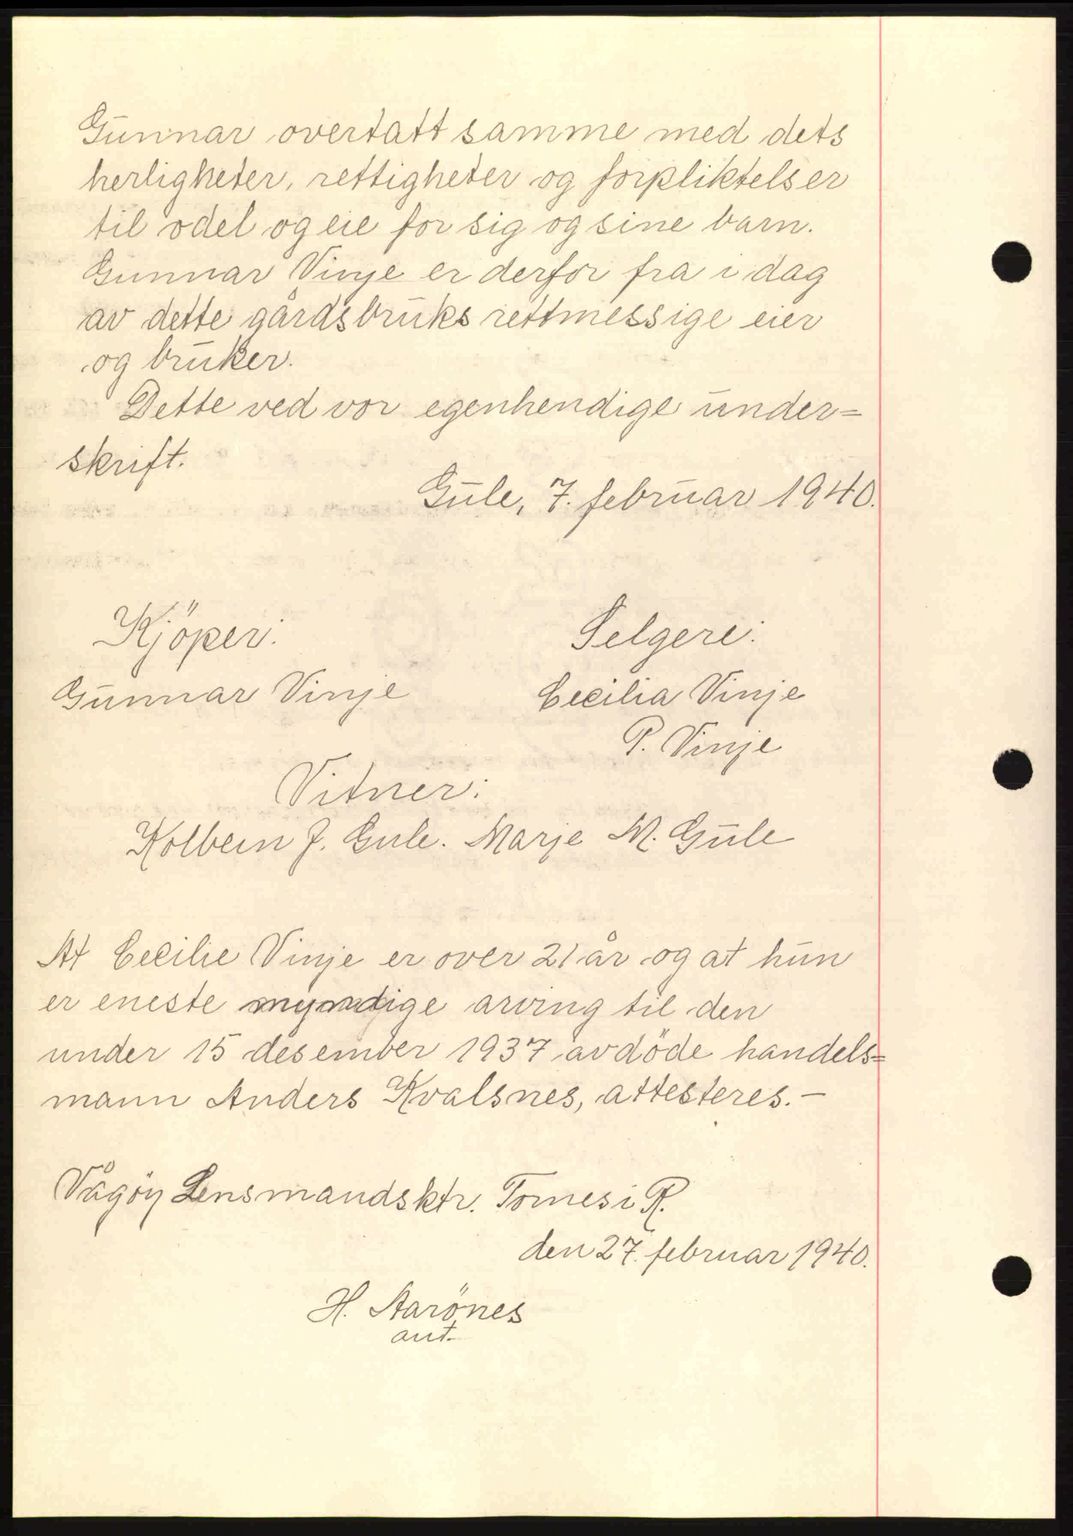 Gunnar overtatt samme med dets
herligheter, rettigheter og forpliktelser
til odel og eie for sig og sine barn.
Gunnar Vinje er derfor fra i dag
av dette gårdsbruks rettmessige eier
og bruker.
Dette ved vor egenhendige under=
skrift.
Gule, 7. februar 1940.
Kjöper:
Selgere:
Gunnar Vinje
Cecilia Vinje
P. Vinje
Vitner:
Kolbein J. Gule. Marje M. Gule
At Cecilie Vinje er over 21 år og at hun
er eneste myndige arving til den
under 15 desember 1937 avdöde handels=
mann Anders Kvalsnes, attesteres.—
Vågöy Lensmandsktr. Tornes i R.
den 27. februar 1940.
H. Aarönes
aut.